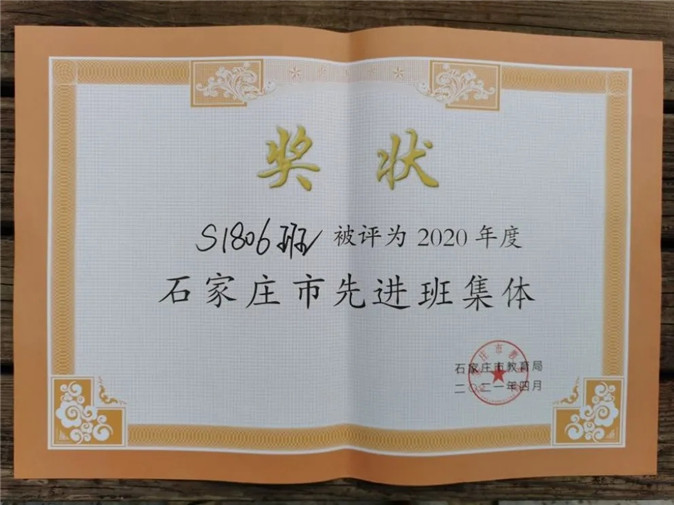 奖状
S1806班 被评为 2020 年度
石家庄市先进班集体
石家庄市教育局
二〇二一年四月